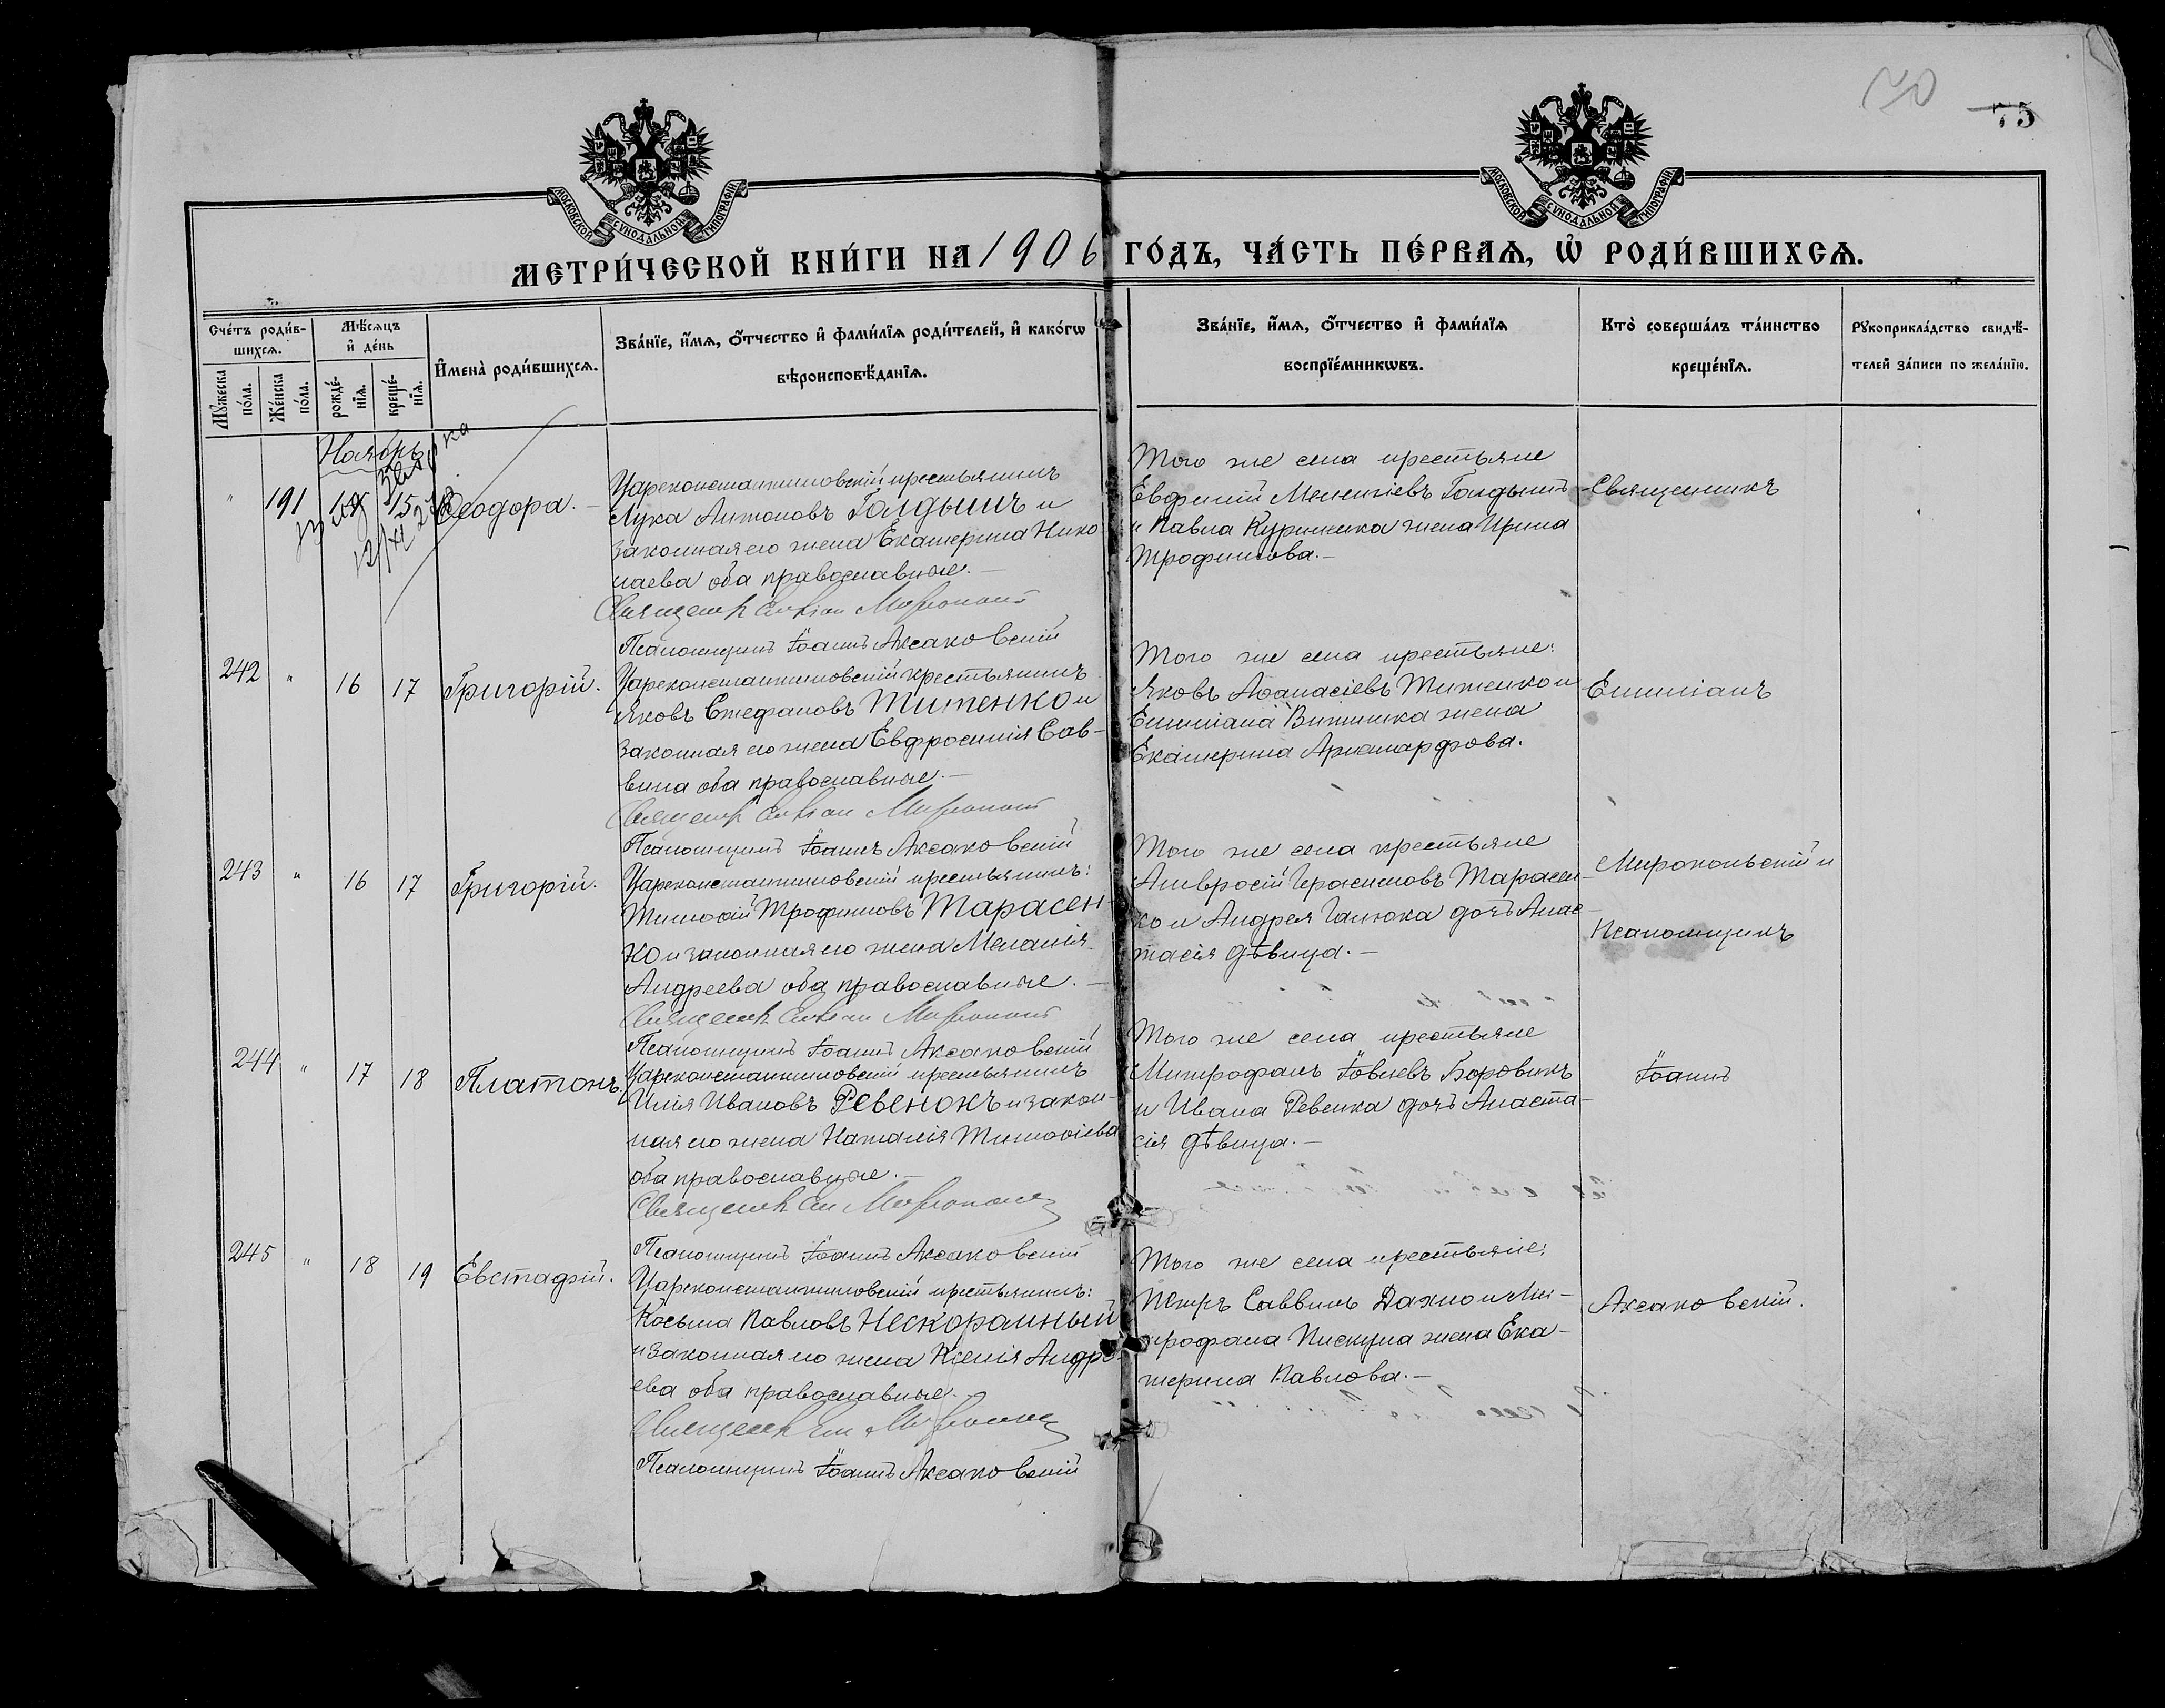 75
МОСКОВСКОЙ СУНОДАЛЬНОЙ ТИПОГРАФІИ
МОСКОВСКОЙ СУНОДАЛЬНОЙ ТИПОГРАФІИ
МЕТРИ́ЧЕСКОЙ КНИ́ГИ НА 1906 ГО́ДЪ, ЧА́СТЬ ПЕ́РВАѦ, Ѡ҆ РОДИ́ВШИХСѦ.
Сче́тъ роди́в-
шихсѧ.
Мꙋ́жеска
по́ла.
Же́нска
по́ла.
Мѣ́сѧцъ
и҆ де́нь
рожде́-
нїѧ.
креще́-
нїѧ.
И҆мена̀ роди́вшихсѧ.
Зва́нїе, и҆́мѧ, ѻ҆́тчество и҆ фами́лїѧ роди́телей, и҆ како́гѡ
вѣроисповѣ́данїѧ.
Зва́нїе, и҆́мѧ, ѻ҆́тчество и҆ фами́лїѧ
воспрїе́мникѡвъ.
Кто̀ соверша́лъ та́инство
креще́нїѧ.
Рꙋкоприкла́дство свидѣ́-
телей за́писи по жела́нїю.
Ноябрь
" 191 15 Ѳеодора.
Цареконстантиновскій крестьянинъ
Лука Антоновъ Галдышъ и
законная его жена Екатерина Нико
лаева оба православные.
Псаломщикъ Іоаннъ Аксаковскій
Того же села крестьяне
Евфимій Галдышъ
и Павла жена Ирина
Трофимова.
Священникъ
242 " 16 17 Григорій.
Цареконстантиновскій крестьянинъ
Яковъ Стефановъ Титенко и
законная его жена Евфросинія Сав-
вина оба православные.
Псаломщикъ Іоаннъ Аксаковскій
Того же села крестьяне:
Яковъ Аѳанасіевъ Титенко и
жена
Екатерина
Емиліанъ
243 " 16 17 Григорій.
Цареконстантиновскій крестьянинъ:
Тимоѳій Трофимовъ Тарасен-
ко и законная его жена Меланія
Андреева оба православные.
Псаломщикъ Іоаннъ Аксаковскій
Того же села крестьяне
Амвросій Герасимовъ Тарасен-
ко и Андрея дочь Анас-
тасія дѣвица.
Миропольскій и
Псаломщикъ
244 " 17 18 Платонъ.
Цареконстантиновскій крестьянинъ
Илія Ивановъ Ревенокъ и закон-
ная его жена Наталія Тимоѳіева
оба православные.
Псаломщикъ Іоаннъ Аксаковскій
Того же села крестьяне
Митрофанъ Іовлевъ Боровикъ
и Ивана Ревенка дочь Анаста-
сія дѣвица.
Іоаннъ
245 " 18 19 Евстафій.
Цареконстантиновскій крестьянинъ:
Косьма Павловъ Нескоромный
и законная его жена Ксенія Андре-
ева оба православные.
Псаломщикъ Іоаннъ Аксаковскій
Того же села крестьяне:
Петръ Саввинъ Дахно и Ми-
трофана Пискуна жена Ека-
терина Павлова.
Аксаковскій.